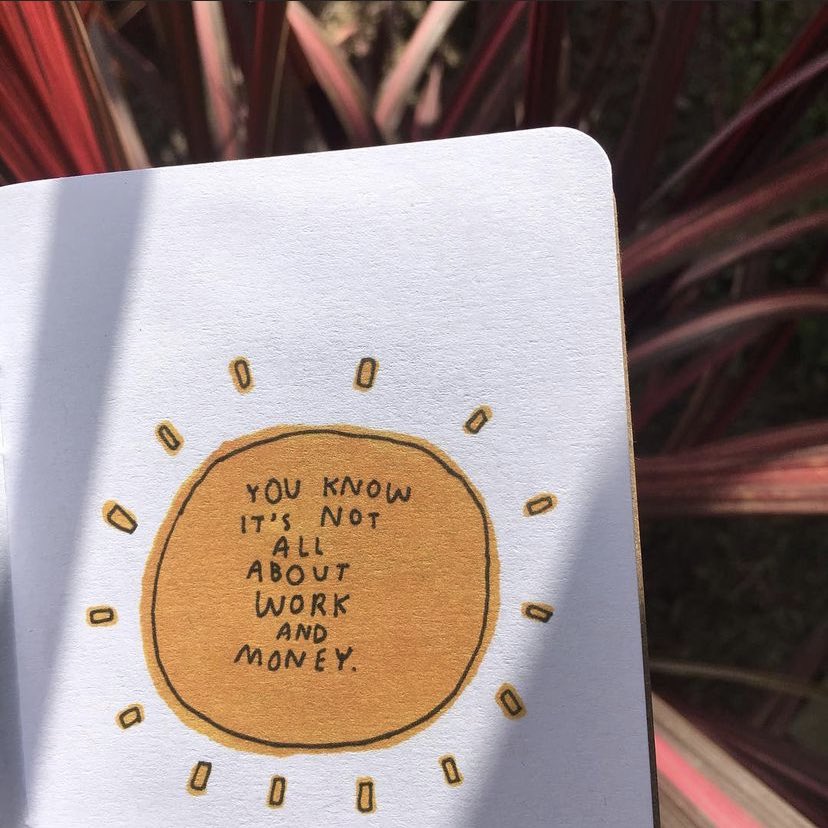 YOU KNOW
IT'S NOT
ALL
ABOUT
WORK
AND
MONEY.